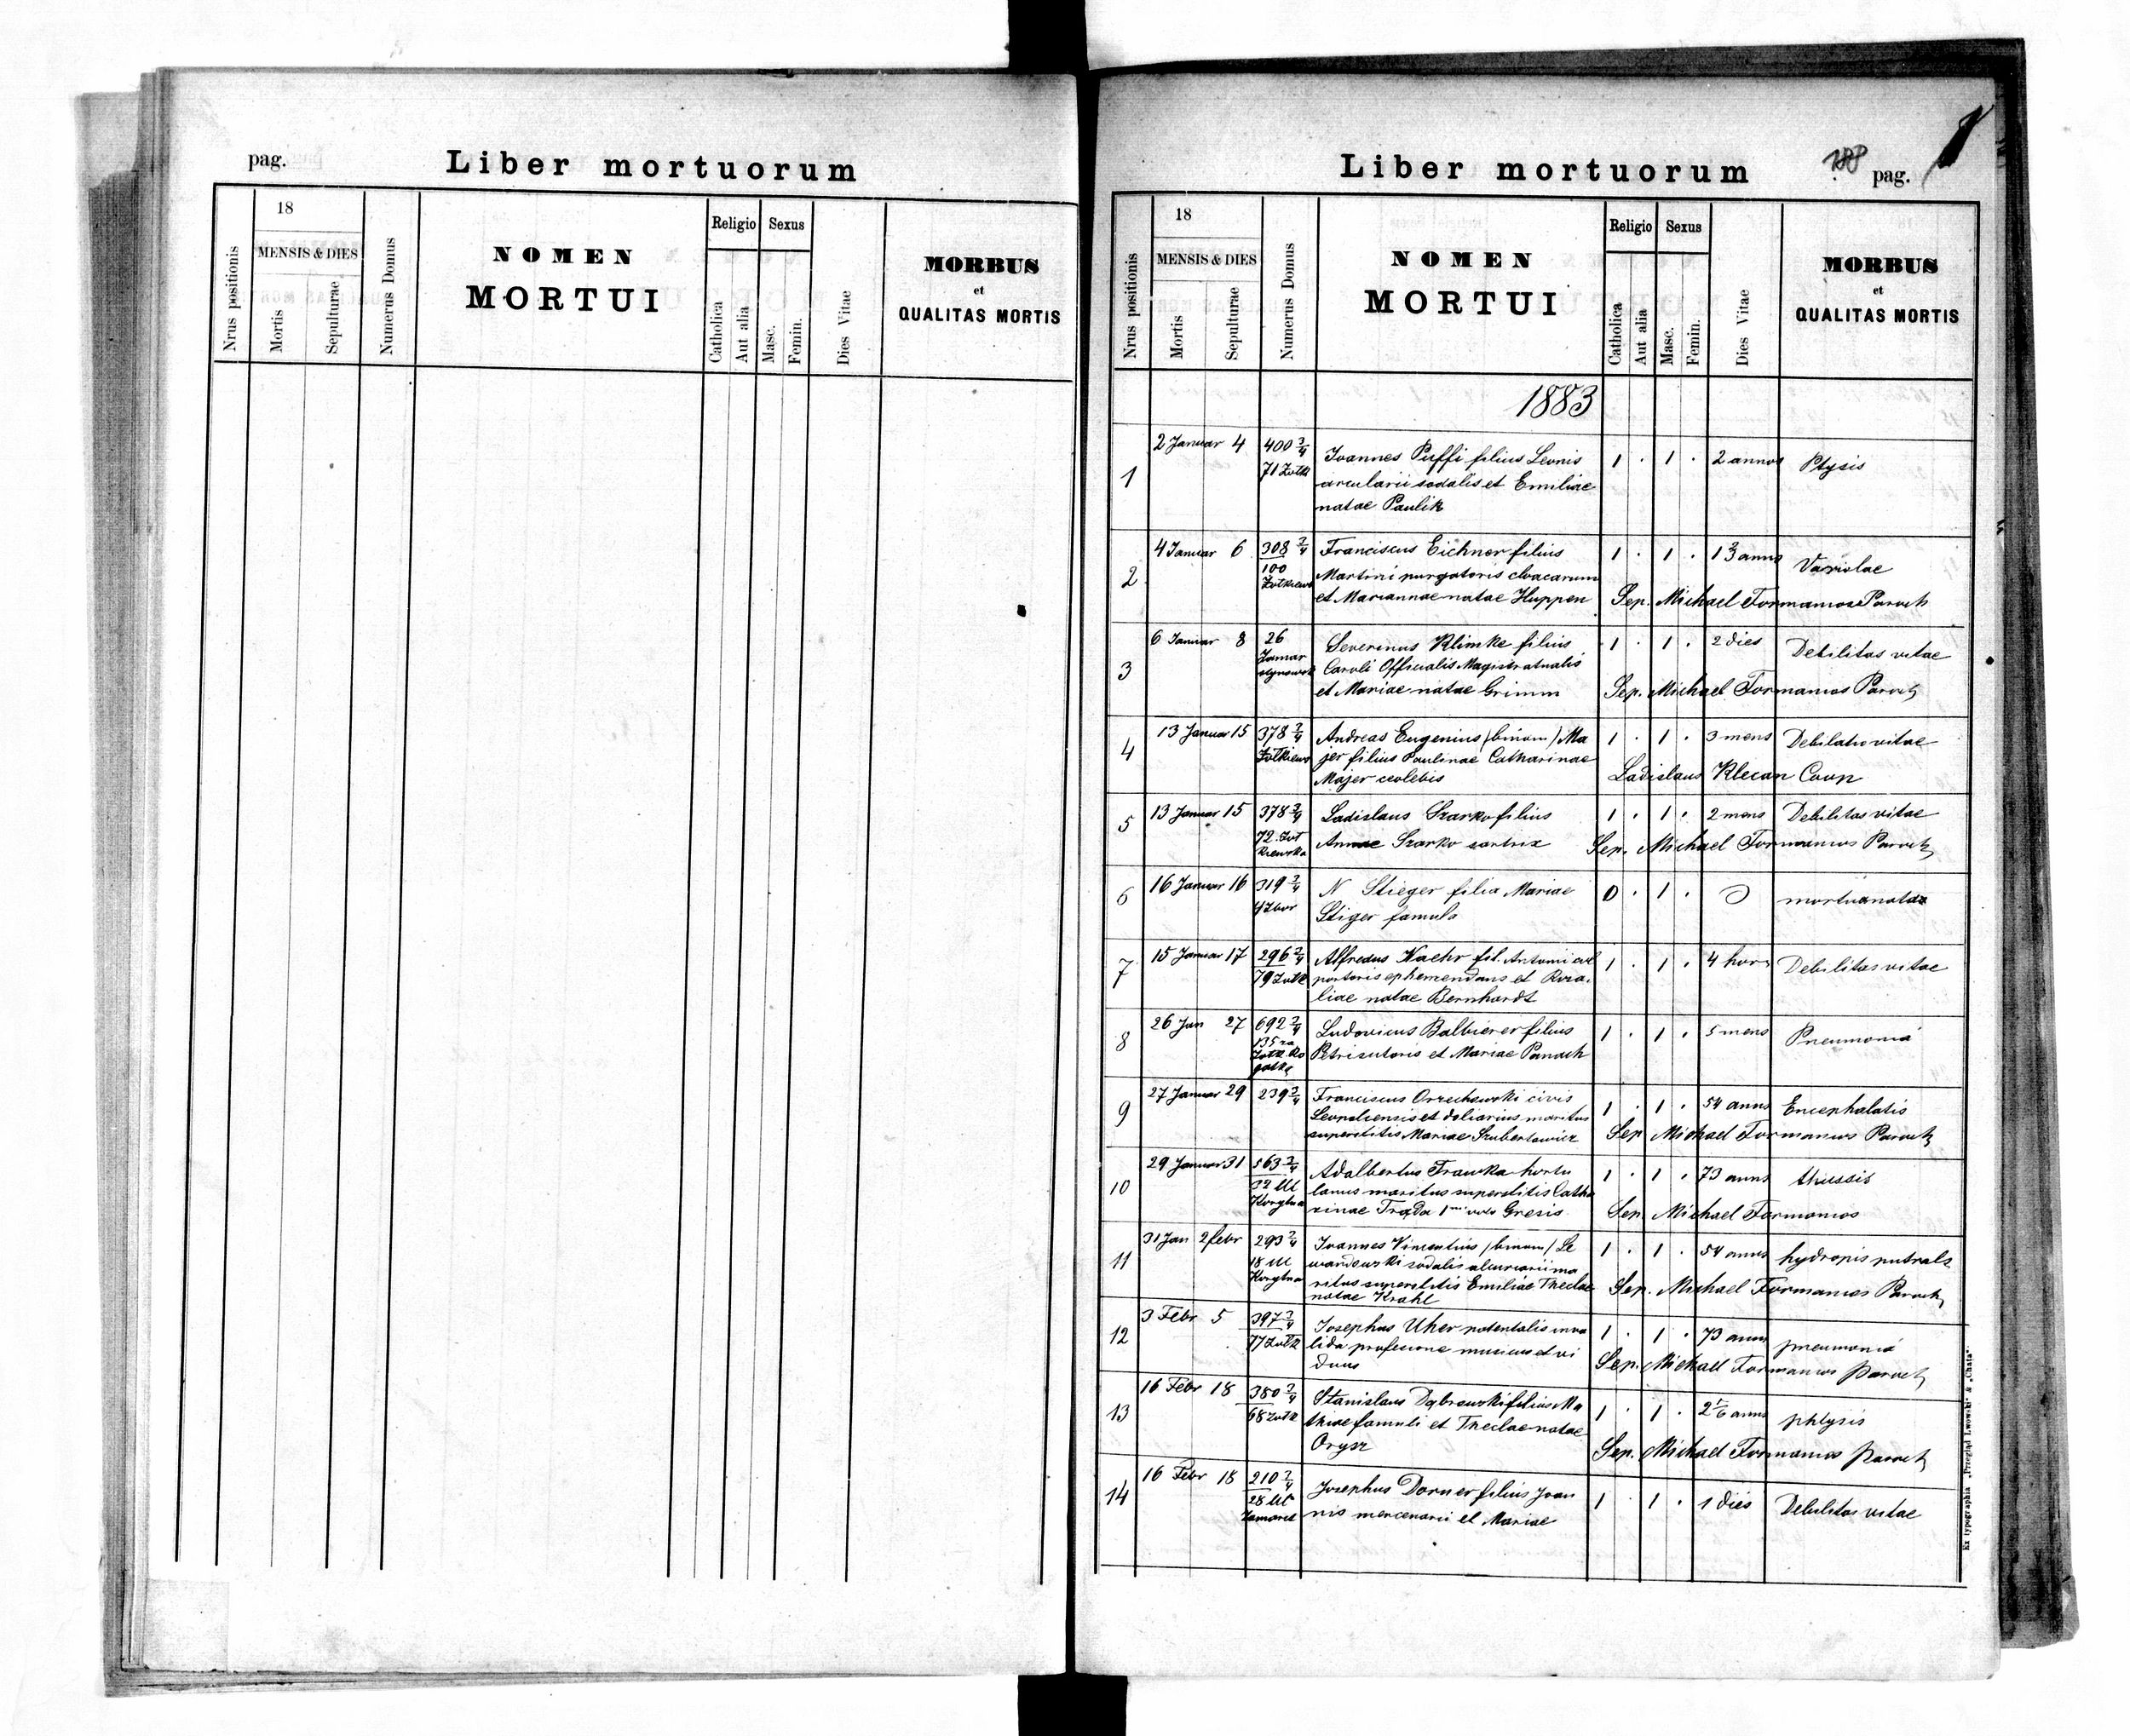 pag.
Liber mortuorum
18
MENSIS & DIES
Nrus positionis
Mortis
Sepulturae
Numerus Domus
NOMEN
MORTUI
Religio
Sexus
Catholica
Aut alia
Masc.
Femin.
Dies Vitae
MORBUS
et
QUALITAS MORTIS
Liber mortuorum
pag. 1
18
MENSIS & DIES
Nrus positionis
Mortis
Sepulturae
Numerus Domus
NOMEN
MORTUI
Religio
Sexus
Catholica
Aut alia
Masc.
Femin.
Dies Vitae
MORBUS
et
QUALITAS MORTIS
1883
1 2 Januar 4 400 2/4 Joannes Puffi filius Leonis 1 . 1 . 2 annos Ptysis
71 Zolk arcularii sodalis et Emiliae
natae Paulik
2 4 Januar 6 308 2/4 Franciscus Eichner filius 1 . 1 . 13 anns Variolae
100 Martini purgatoris cloacarum
Zolkiews et Mariannae natae Huppen Sep. Michael Formanios Paroch
3 6 Januar 8 26 Severinus Klimke filius 1 . 1 . 2 dies Debilitas vitae
Caroli Officialis Magistratualis
et Mariae natae Grimm Sep. Michael Formanios Paroch
4 13 Januar 15 378 2/4 Andreas Eugenius /binom/ Ma 1 . 1 . 3 mens Debilatio vitae
Zolkiews jer filius Paulinae Catharinae
Majer coelebis Ladislaus Klecan Coop
5 13 Januar 15 378 2/4 Ladislaus Szarko filius 1 . 1 . 2 mens Debilitas vitae
72 Zol
kiewska Annae Szarko sartrix Sep. Michael Formanios Paroch
6 16 Januar 16 319 2/4 N Stieger filia Mariae 0 . 1 . 0 mortuanata
4 Zbor Stiger famula
7 15 Januar 17 296 2/4 Alfredus Kaehr fil. Antonii col 1 . 1 . 4 hor Debilitas vitae
79 Zolk portoris et Roza
liae natae Bernhardt
8 26 Jan 27 692 2/4 Ludovicus Balbierer filius 1 . 1 . 5 mens Pneumonia
135 ra
Zolk. Ro Petri sutoris et Mariae Panach
gatk
9 27 Januar 29 239 2/4 Franciscus Orzechowski civis 1 . 1 . 54 anns Encephalatis
Leopoliensis et doliarius maritus
superstitis Mariae Szubertowicz Sep Michael Formanios Paroch
10 29 Januar 31 563 2/4 Adalbertus Franka hortu 1 . 1 . 73 anns thussis
32 Ul lanus maritus superstitis Catha
rinae 1mi voto Gresis Sep. Michael Formanios
11 31 Jan 2 febr 293 2/4 Joannes Vincentius /binom/ Le 1 . 1 . 54 anns hydropis
18 Ul wandowski sodalis ma
ritus superstitis Emiliae Theclae Sep. Michael Formanios Paroch
natae Krahl
12 3 Febr 5 397 2/4 Josephus Uher patentalis inva 1 . 1 . 73 anns pneumonia
77 Zolk lida profesione musicus et vi
duus Sep. Michael Formanios Paroch
13 16 Febr 18 380 2/4 Stanislaus Dąbrowski filius Ma 1 . 1 . 2 1/6 anns phtysis
68 Zolk thiae famuli et Theclae natae
Orysz Sep. Michael Formanios Paroch
14 16 Febr 18 210 2/4 Josephus Dorner filius Joan 1 . 1 . 1 dies Debilitas vitae
28 Ul
Zamarst nis mercenarii et Mariae
Ex typographia „Przegląd Lwowski" & „Chata"